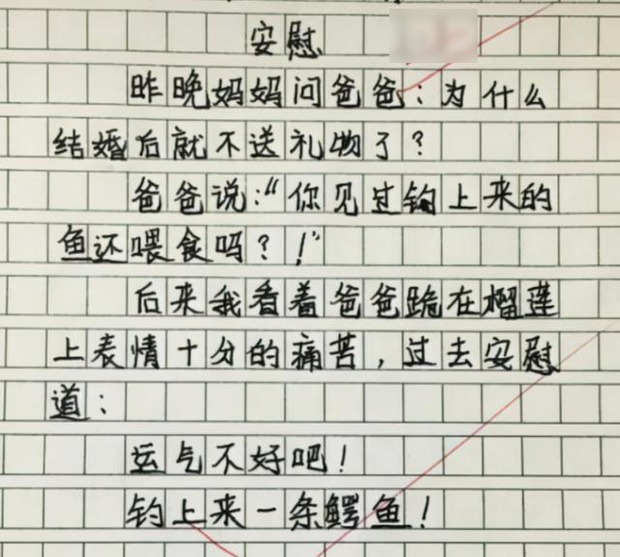 安慰
昨晚妈妈问爸爸:为什么
结婚后就不送礼物了?
爸爸说:“你见过钩上来的
鱼还喂食吗?!”
后来我看着爸爸跪在榴莲
上表情十分的痛苦,过去安慰
道:
运气不好吧!
钓上来一条鳄鱼!